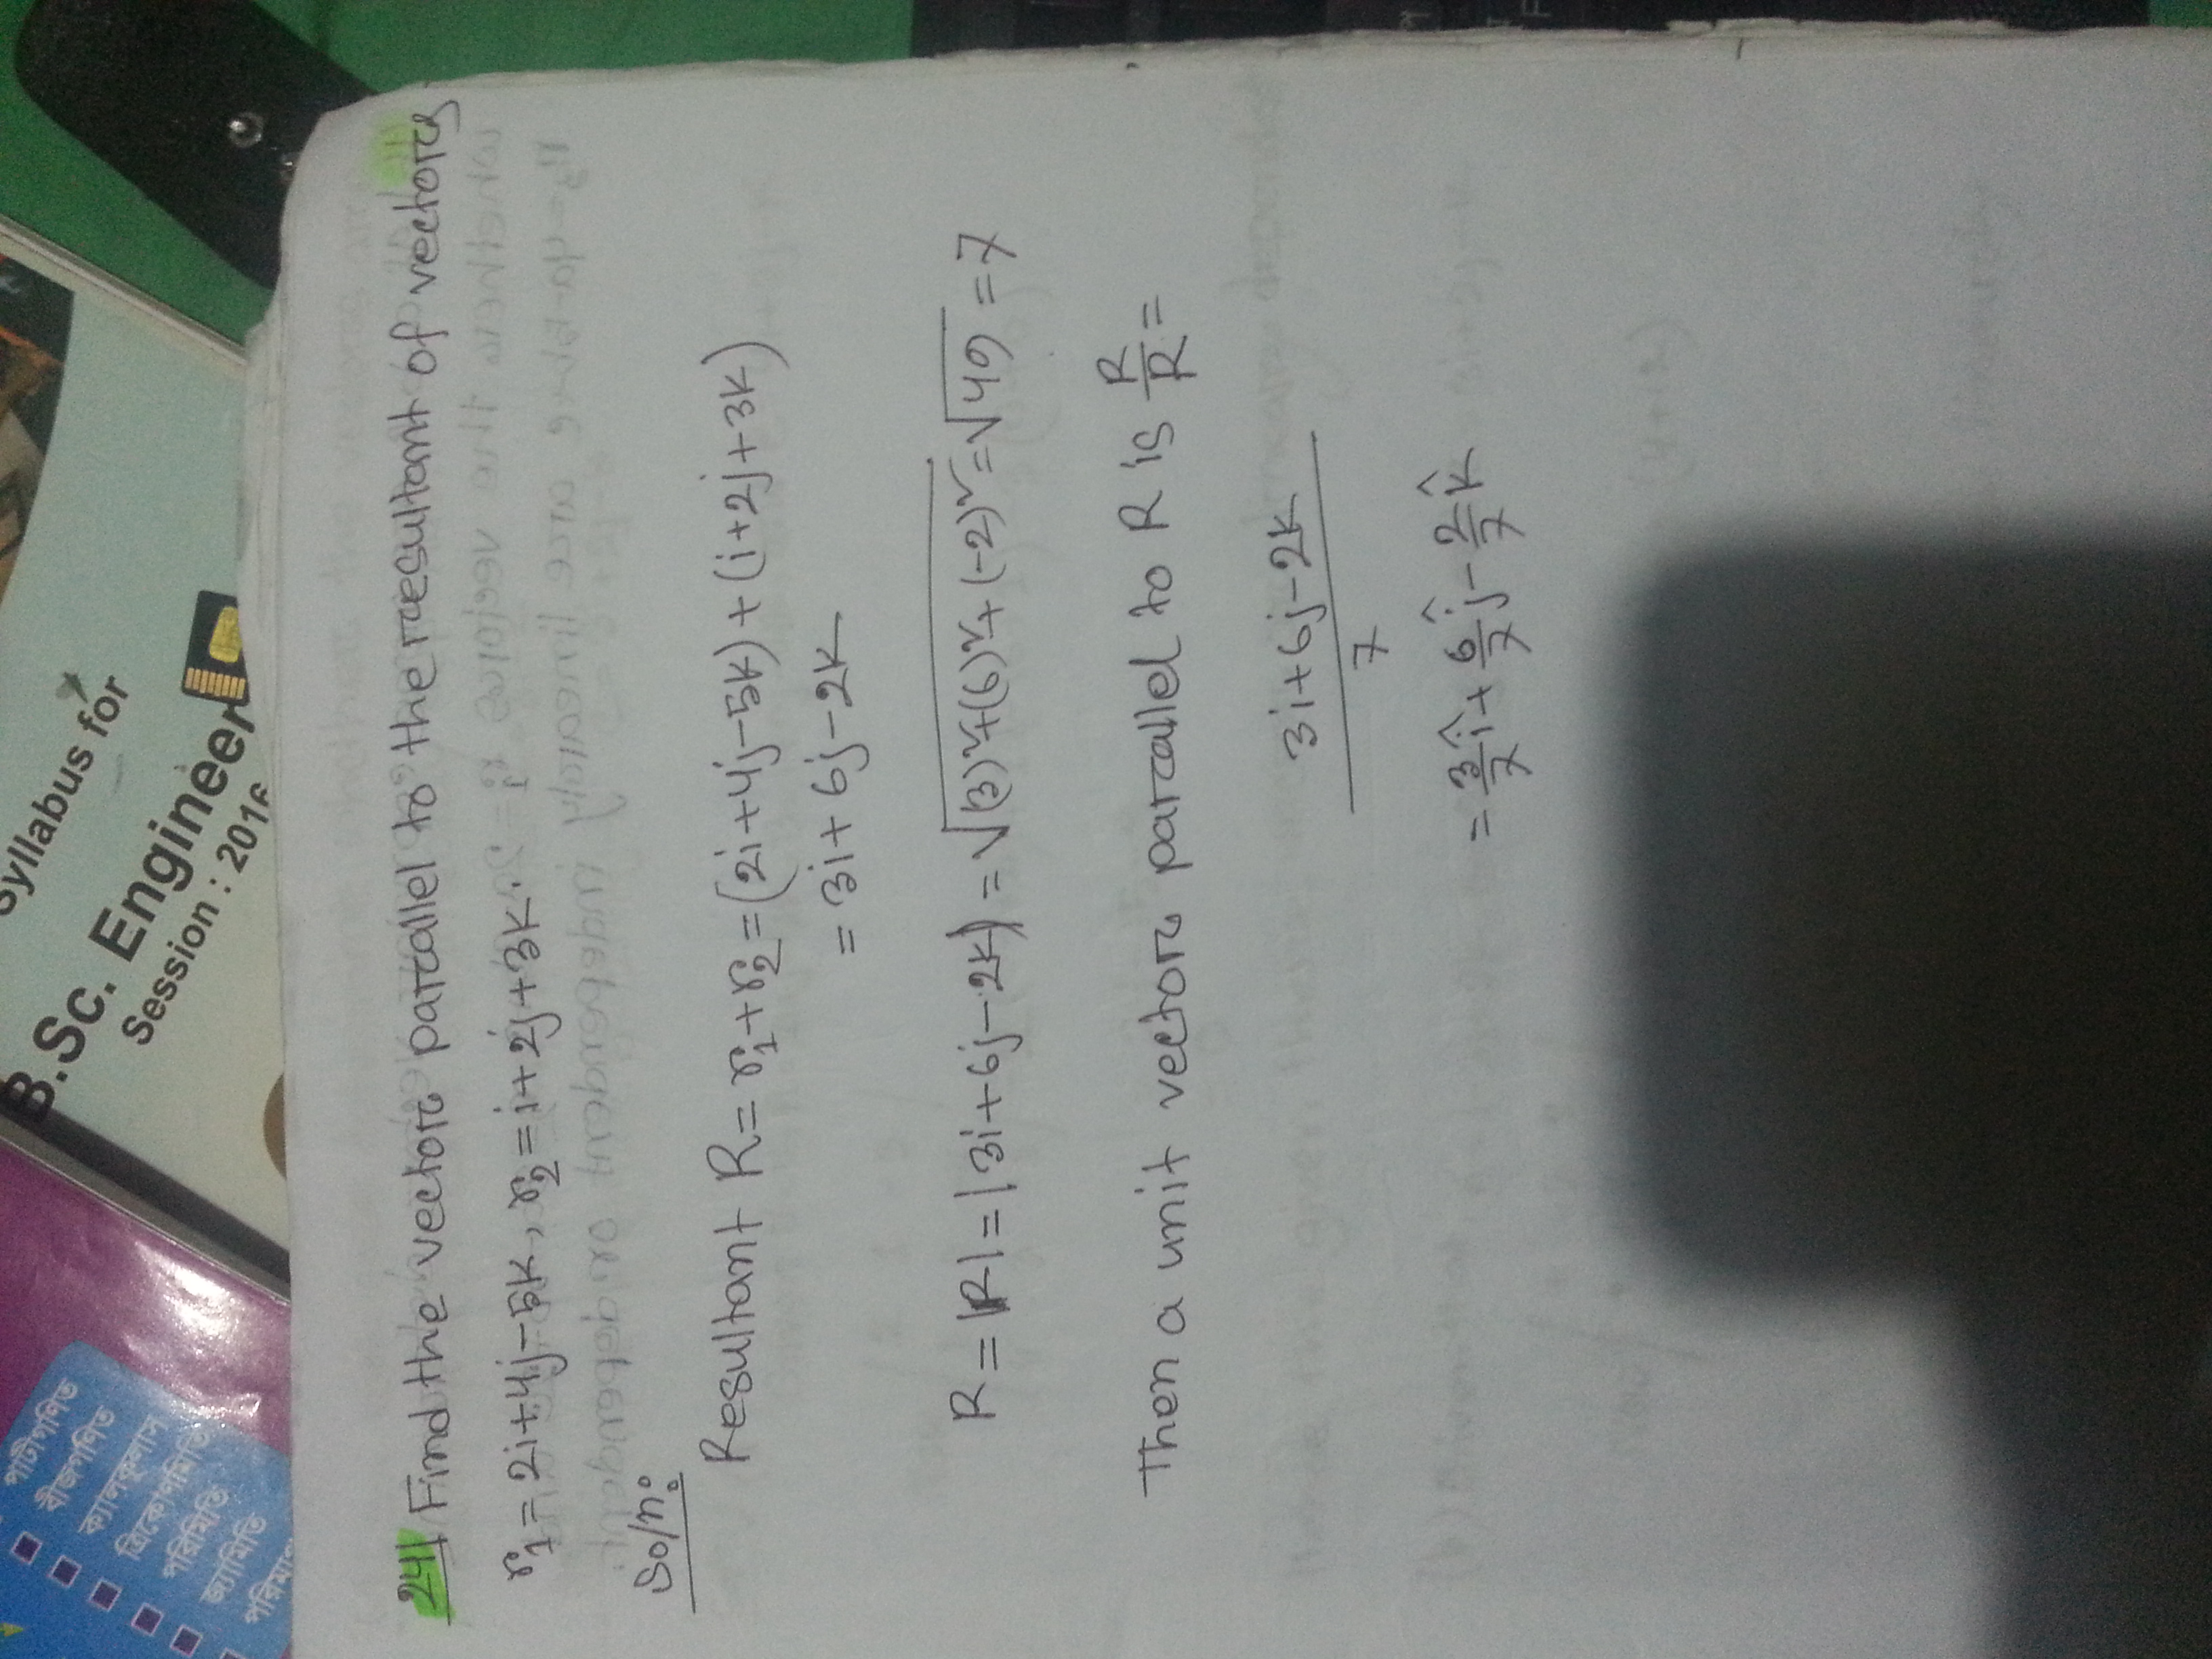 পাটীগণিত
বীজগণিত
ক্যালকুলাস
ত্রিকোণমিতি
পরিমিতি
জ্যামিতি
Syllabus for
B.Sc. Engineer
Session : 2016
24| Find the vector parallel to the resultant of vectors
r₁ = 2i+4j-5k, r₂ = i+2j+3k.
Soln:
Resultant R = r₁+r₂ = (2i+4j-5k) + (i+2j+3k)
= 3i+6j-2k
R = |R| = |3i+6j-2k| = √(3)²+(6)²+(-2)² = √49 = 7
Then a unit vector parallel to R is R/R =
3i+6j-2k
7
= 3/7 î + 6/7 ĵ - 2/7 k̂